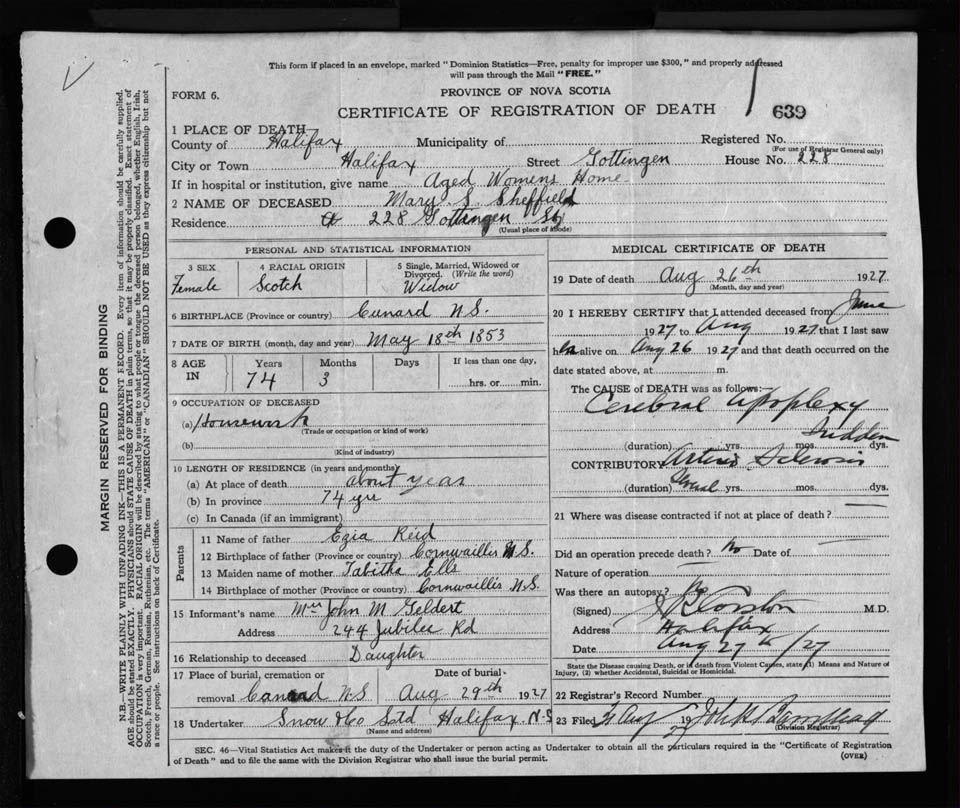 This form if placed in an envelope, marked "Dominion Statistics—Free, penalty for improper use $300," and properly addressed
will pass through the Mail "FREE."
FORM 6.
PROVINCE OF NOVA SCOTIA
CERTIFICATE OF REGISTRATION OF DEATH
639
1 PLACE OF DEATH
County of Halifax Municipality of Registered No.
(For use of Registrar General only)
City or Town Halifax Street Gottingen House No. 228
If in hospital or institution, give name Aged Womens Home
2 NAME OF DECEASED Mary S. Sheffield
Residence 228 Gottingen St
(Usual place of abode)
PERSONAL AND STATISTICAL INFORMATION
3 SEX 4 RACIAL ORIGIN 5 Single, Married, Widowed or
Divorced. (Write the word)
Female Scotch Widow
6 BIRTHPLACE (Province or country) Cunard N.S.
7 DATE OF BIRTH (month, day and year) May 18th 1853
8 AGE IN Years Months Days If less than one day,
74 3 hrs. or min.
9 OCCUPATION OF DECEASED
(a) Housework
(Trade or occupation or kind of work)
(b)
(Kind of industry)
10 LENGTH OF RESIDENCE (in years and months)
(a) At place of death about year
(b) In province 74 yrs
(c) In Canada (if an immigrant)
Parents
11 Name of father Ezia Reid
12 Birthplace of father (Province or country) Cornwallis N.S.
13 Maiden name of mother Tabitha Ells
14 Birthplace of mother (Province or country) Cornwallis N.S.
15 Informant's name Mrs John M Geldert
Address 244 Jubilee Rd
16 Relationship to deceased Daughter
17 Place of burial, cremation or Date of burial
removal Canard N.S Aug 29th 1927
18 Undertaker Snow & Co Ltd Halifax N-S
(Name and address)
MEDICAL CERTIFICATE OF DEATH
19 Date of death Aug 26th 1927
(Month, day and year)
20 I HEREBY CERTIFY that I attended deceased from June
1927 to Aug 1927 that I last saw
her alive on Aug 26 1927 and that death occurred on the
date stated above, at m.
The CAUSE of DEATH was as follows:
Cerebral Apoplexy
Sudden
(duration) yrs. mos. dys.
CONTRIBUTORY Arterio Sclerosis
(duration) Several yrs. mos. dys.
21 Where was disease contracted if not at place of death?
Did an operation precede death? No Date of
Nature of operation
Was there an autopsy? No
(Signed) M.D.
Address Halifax
Date Aug 27th/27
State the Disease causing Death, or in death from Violent Causes, state (1) Means and Nature of
Injury, (2) whether Accidental, Suicidal or Homicidal.
22 Registrar's Record Number
23 Filed Aug 19
(Division Registrar)
SEC. 46—Vital Statistics Act makes it the duty of the Undertaker or person acting as Undertaker to obtain all the particulars required in the "Certificate of Registration
of Death" and to file the same with the Division Registrar who shall issue the burial permit.
(OVER)
MARGIN RESERVED FOR BINDING
N.B.—WRITE PLAINLY WITH UNFADING INK—THIS IS A PERMANENT RECORD. Every item of information should be carefully supplied.
AGE should be stated EXACTLY. PHYSICIANS should STATE CAUSE OF DEATH in plain terms, so that it may be properly classified. Exact statement of
OCCUPATION is very important. RACIAL ORIGIN will be described by stating to what people or tongue the deceased person belonged, whether English, Irish,
Scotch, French, German, Russian, Ruthenian, etc. The terms "AMERICAN" or "CANADIAN" SHOULD NOT BE USED as they express citizenship but not
a race or people. See instructions on back of Certificate.